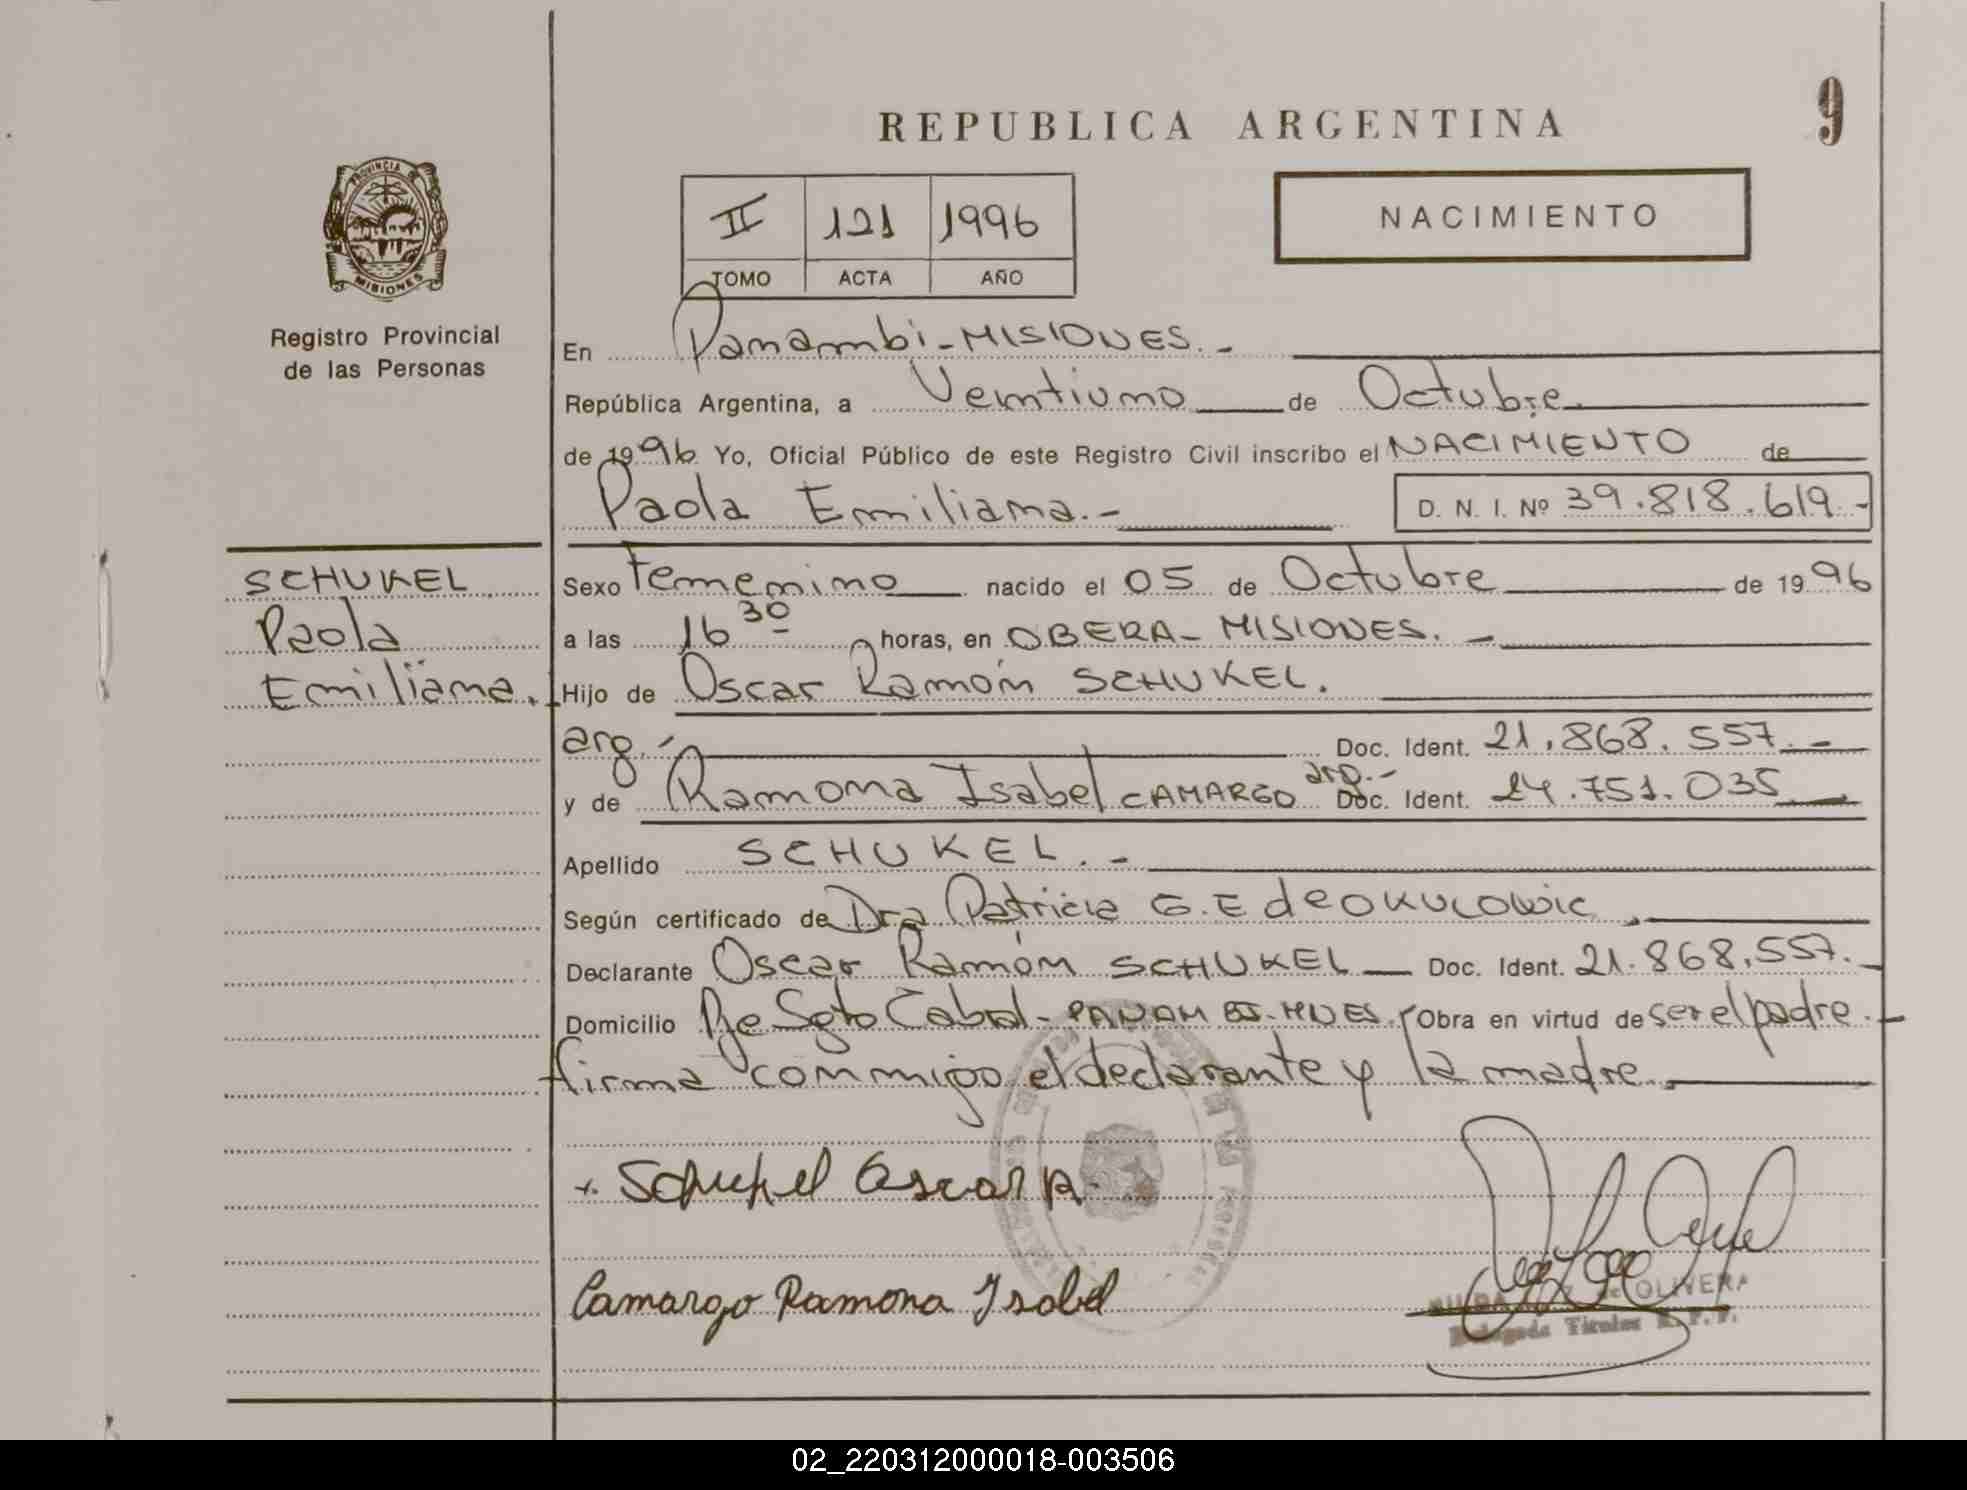 9
REPUBLICA ARGENTINA
PROVINCIA DE
MISIONES
Registro Provincial
de las Personas
II 121 1996
TOMO ACTA AÑO
NACIMIENTO
En Panambi-MISIONES.-
República Argentina, a Veintiuno de Octubre.
de 1996 Yo, Oficial Público de este Registro Civil inscribo el NACIMIENTO de
Paola Emiliana.- D. N. I. Nº 39.818.619.-
SCHUKEL
Paola
Emiliana.-
Sexo Femenino nacido el 05 de Octubre de 1996
a las 16 30 horas, en OBERA-MISIONES.-
Hijo de Oscar Ramón SCHUKEL.
arg.- Doc. Ident. 21.868.557.-
y de Ramona Isabel CAMARGO arg.- Doc. Ident. 24.751.035
Apellido SCHUKEL.-
Según certificado de Dra Patricia G. E de OKULOWIC
Declarante Oscar Ramón SCHUKEL Doc. Ident. 21.868.557.-
Domicilio Pje Sgto Cabral-PANAMBI-MNES. Obra en virtud de ser el padre.-
firma conmigo el declarante y la madre.
Schukel Oscar R.
Camargo Ramona Isabel
de OLIVERA
Delegada Titular R. P. P.
02_220312000018-003506